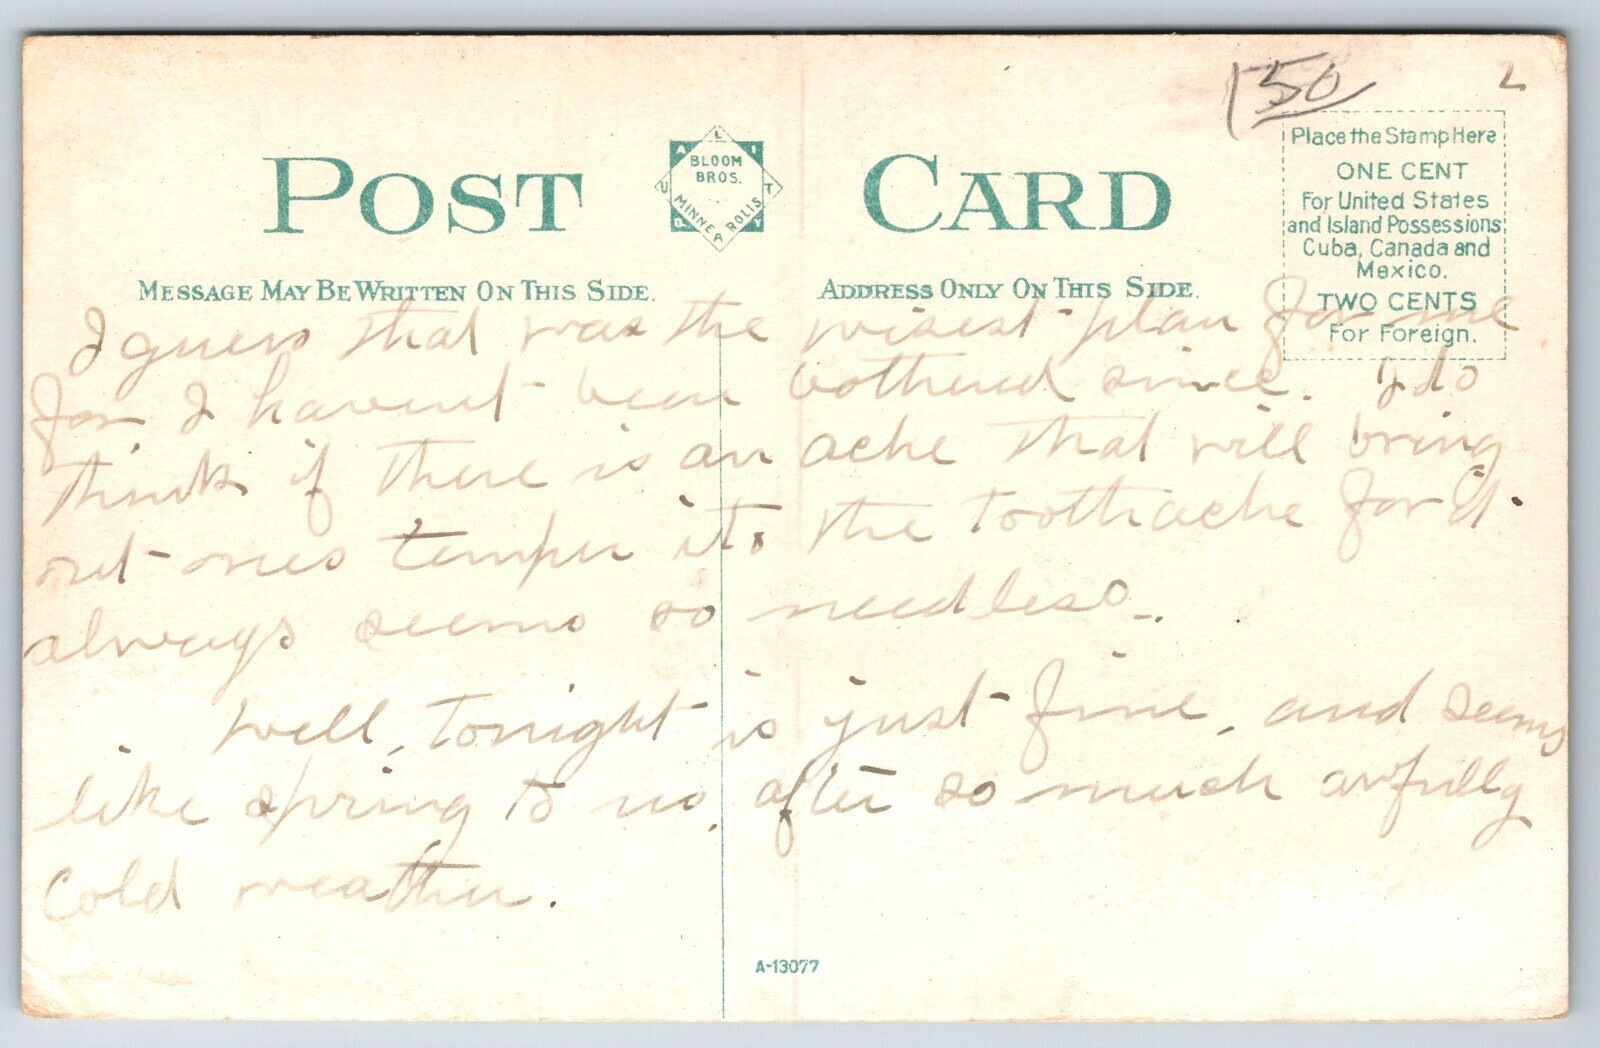 150
2
POST CARD
A L I
BLOOM
BROS.
U T
MINNEAPOLIS
Q Y
Place the Stamp Here
ONE CENT
For United States
and Island Possessions,
Cuba, Canada and
Mexico.
TWO CENTS
For Foreign.
MESSAGE MAY BE WRITTEN ON THIS SIDE.
ADDRESS ONLY ON THIS SIDE.
I guess that was the wisest plan for me
for I havent been bothered since. I do
think if there is an ache that will bring
out ones temper its the toothache for it
always seems so needless.
Well, tonight is just fine, and seems
like spring to us, after so much awfully
cold weather.
A-13077